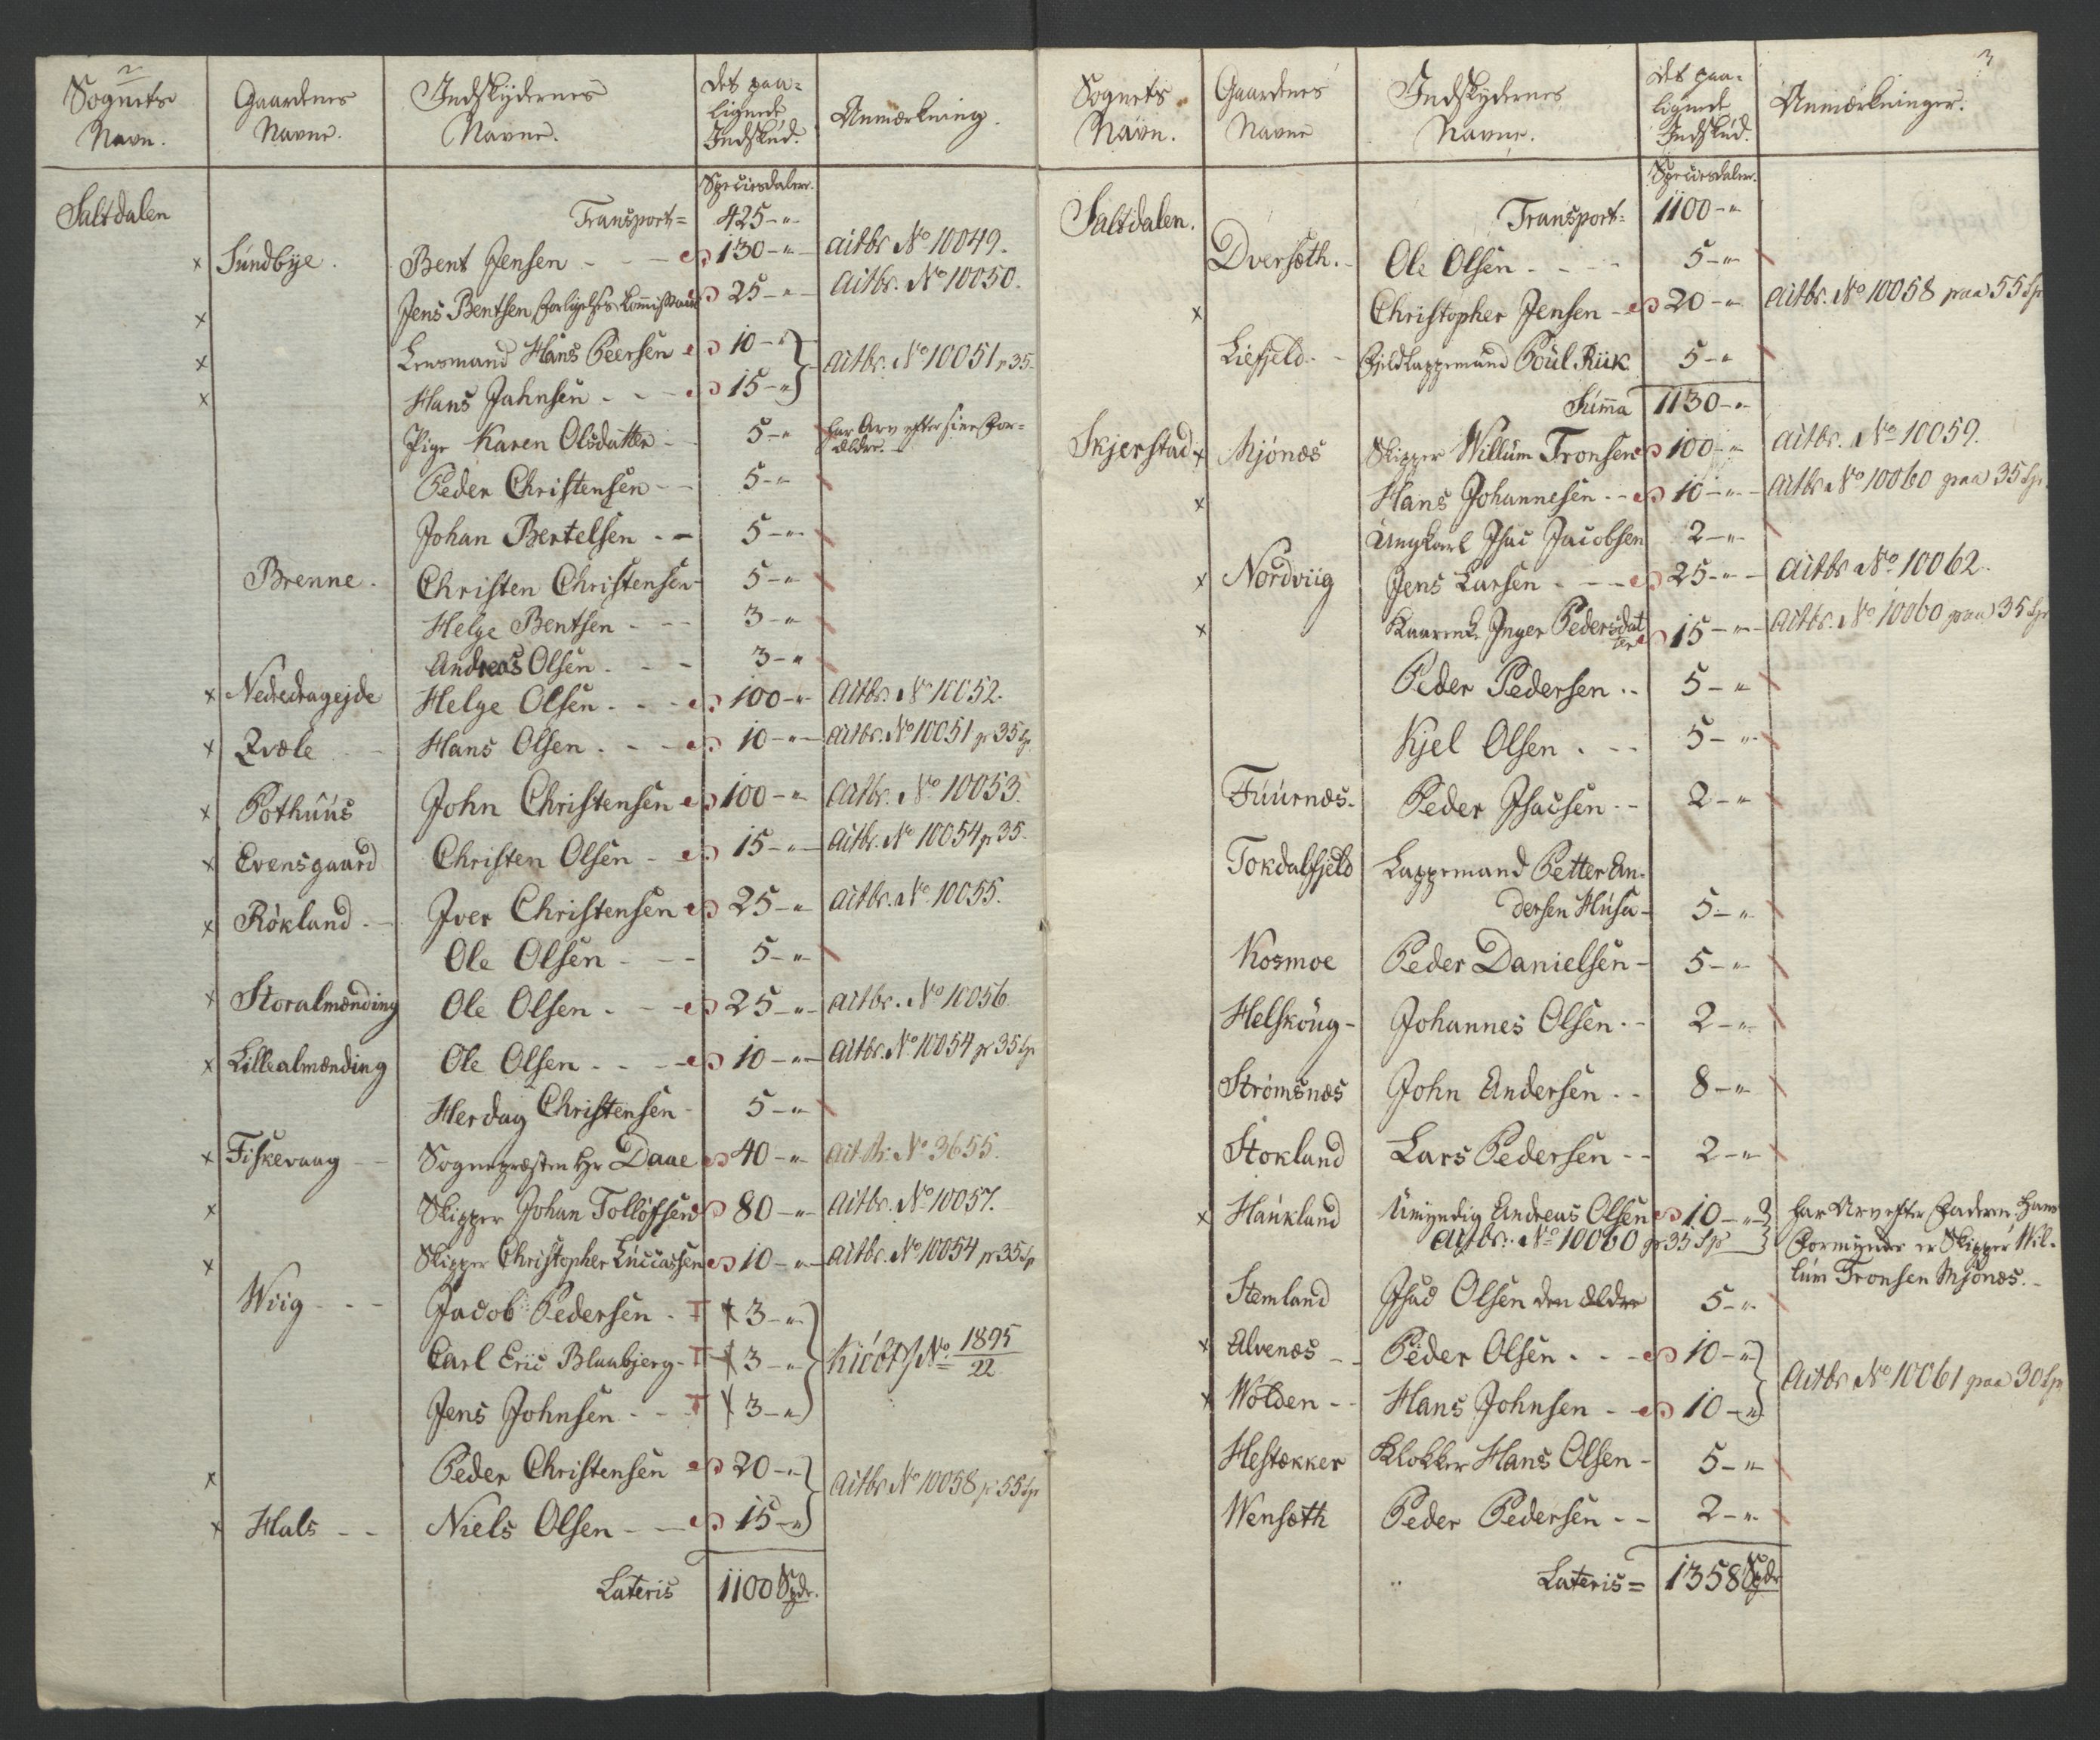 2
Sognets Navn. Gaardenes Navne. Indskydernes Navne. Det paalignede Indskud. Anmærkning.
Speciesdaler.
Saltdalen Transport= 425-"-
x Sundbye. Bent Jensen - - - 130-"- aitbr No 10049.
x Jens Bentsen, Forligelses Commissair 25-"- aitbr. No 10050.
x Lensmand Hans Peersen - 10-"-
x Hans Jahnsen - - - 15-"- aitbr. No 10051 p 35-
Pige Karen Olsdatter - 5-"- har Arv efter sine Forældre.-
Peder Christensen - - 5-"-
Johan Bertelsen - - 5-"-
Brenne. Christen Christensen 5-"-
Helge Bentsen - - - 3-"-
Andreas Olsen. - - 3-"
x Nedredragejde Helge Olsen. - - 100-"- aitbr. No 10052.
x Qvæle - Hans Olsen. - - 10-"- aitbr. No 10051 p 35 Sp
x Pothuus John Christensen 100-"- aitbr. No 10053.
x Evensgaard Christen Olsen - 15-"- aitbr. No 10054 p 35.
x Rökland. - Iver Christensen 25-"- aitbr. No 10055.
Ole Olsen - - - 5-"-
x Storalmænding Ole Olsen. - - 25-"- aitbr. No 10056
x Lillealmænding Ole Olsen. - - 10-"- aitbr. No 10054 p 35 Sp
Herdag Christensen - 5-"-
x Fiskevaag - - Sognepræsten Hr Daae 40-"- aitbr. No 3655.
x Skipper Johan Tollöfsen 80-"- aitbr. No 10057.
x Skipper Christopher Luccassen 10-"- aitbr. No 10054 p 35 Sp
Wiig - - - Jacob Pedersen - T 3-"-
Carl Eric Blaabjerg - T 3-"- Kiöbt / No 1895/22
Jens Johnsen - - T 3-"-
x Peder Christensen 20-"-
x Hals - - Niels Olsen - - 15-"- aitbr No 10058 p 55 Sp
Lateris 1100 Spdr.
3
Sognets Navn. Gaardenes Navne Indskydernes Navne. Det paalignede Indskud. Anmærkninger.
Speciesdaler.
Saltdalen. Transport= 1100-"
Dverseth. - Ole Olsen - - - 5-"-
x Christopher Jensen - 20-"- aitbr. No 10058 paa 55 Sp
Liefjeld - - Fjeldlappemand Poul Riik 5-"
Summa 1130-"-
Skjerstad x Mjönæs Skipper Willum Tronsen 100-"- aitbr. No 10059.
x Hans Johannesen - - 10-"- aitbr No 10060 paa 35 Sp.
Ungkarl Isac Jacobsen 2-"-
x Nordviig Jens Larsen - - - 25-"- aitbr No 10062.
x Kaarenke Inger Pedersdatter 15-"- aitbr. No 10060 paa 35 Sp
Peder Pedersen - - 5-"
Kjel Olsen. - - 5-"-
Fuurnæs - Peder Isacsen - - 2-"
Tokdalfjeld Lappemand Petter Andersen Husa - 5-"-
Kosmoe Peder Danielsen - 5-"-
Helskoug - Johannes Olsen - - 2-"-
Strömsnæs John Andersen - - 8-"-
Stokland Lars Pedersen - - 2-"
x Haukland Umyndig Andreas Olsen 10-"- har Arv efter Faderen. Hans
aitbr. No 10060 p 35 Sp Formynder er Skipper Wil-
lum Tronsen Mjönes. -
Stemland Isac Olsen den ældre 5-"-
x Alvenæs - - Peder Olsen. - - 10-"-
x Wolden - - Hans Johnsen - 10-"- aitbr No 10061 paa 30 Sp
Hestækker Klokker Hans Olsen - 5-"
Wenseth Peder Pedersen - - 2-"-
Lateris= 1358 Spdr